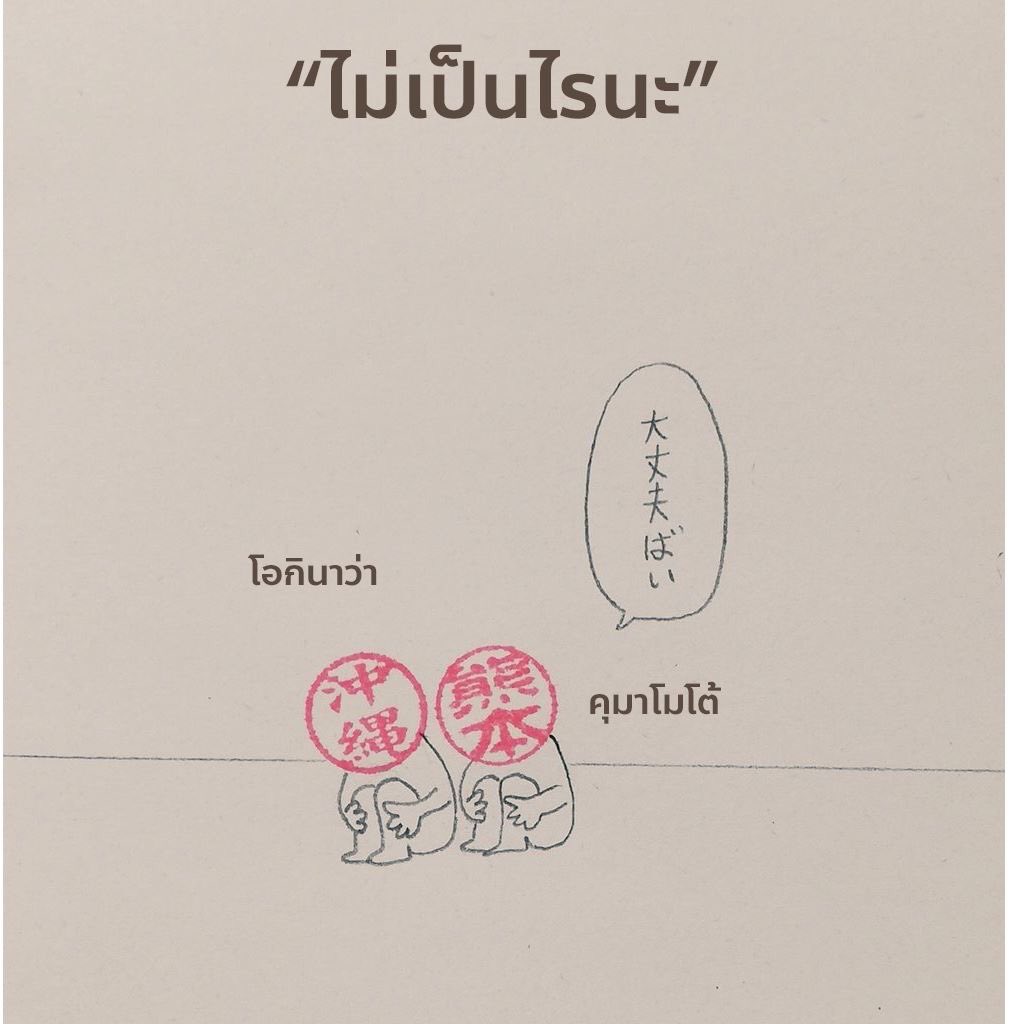 “ไม่เป็นไรนะ”
大丈夫ばい
โอกินาว่า
沖縄
熊本
คุมาโมโต้